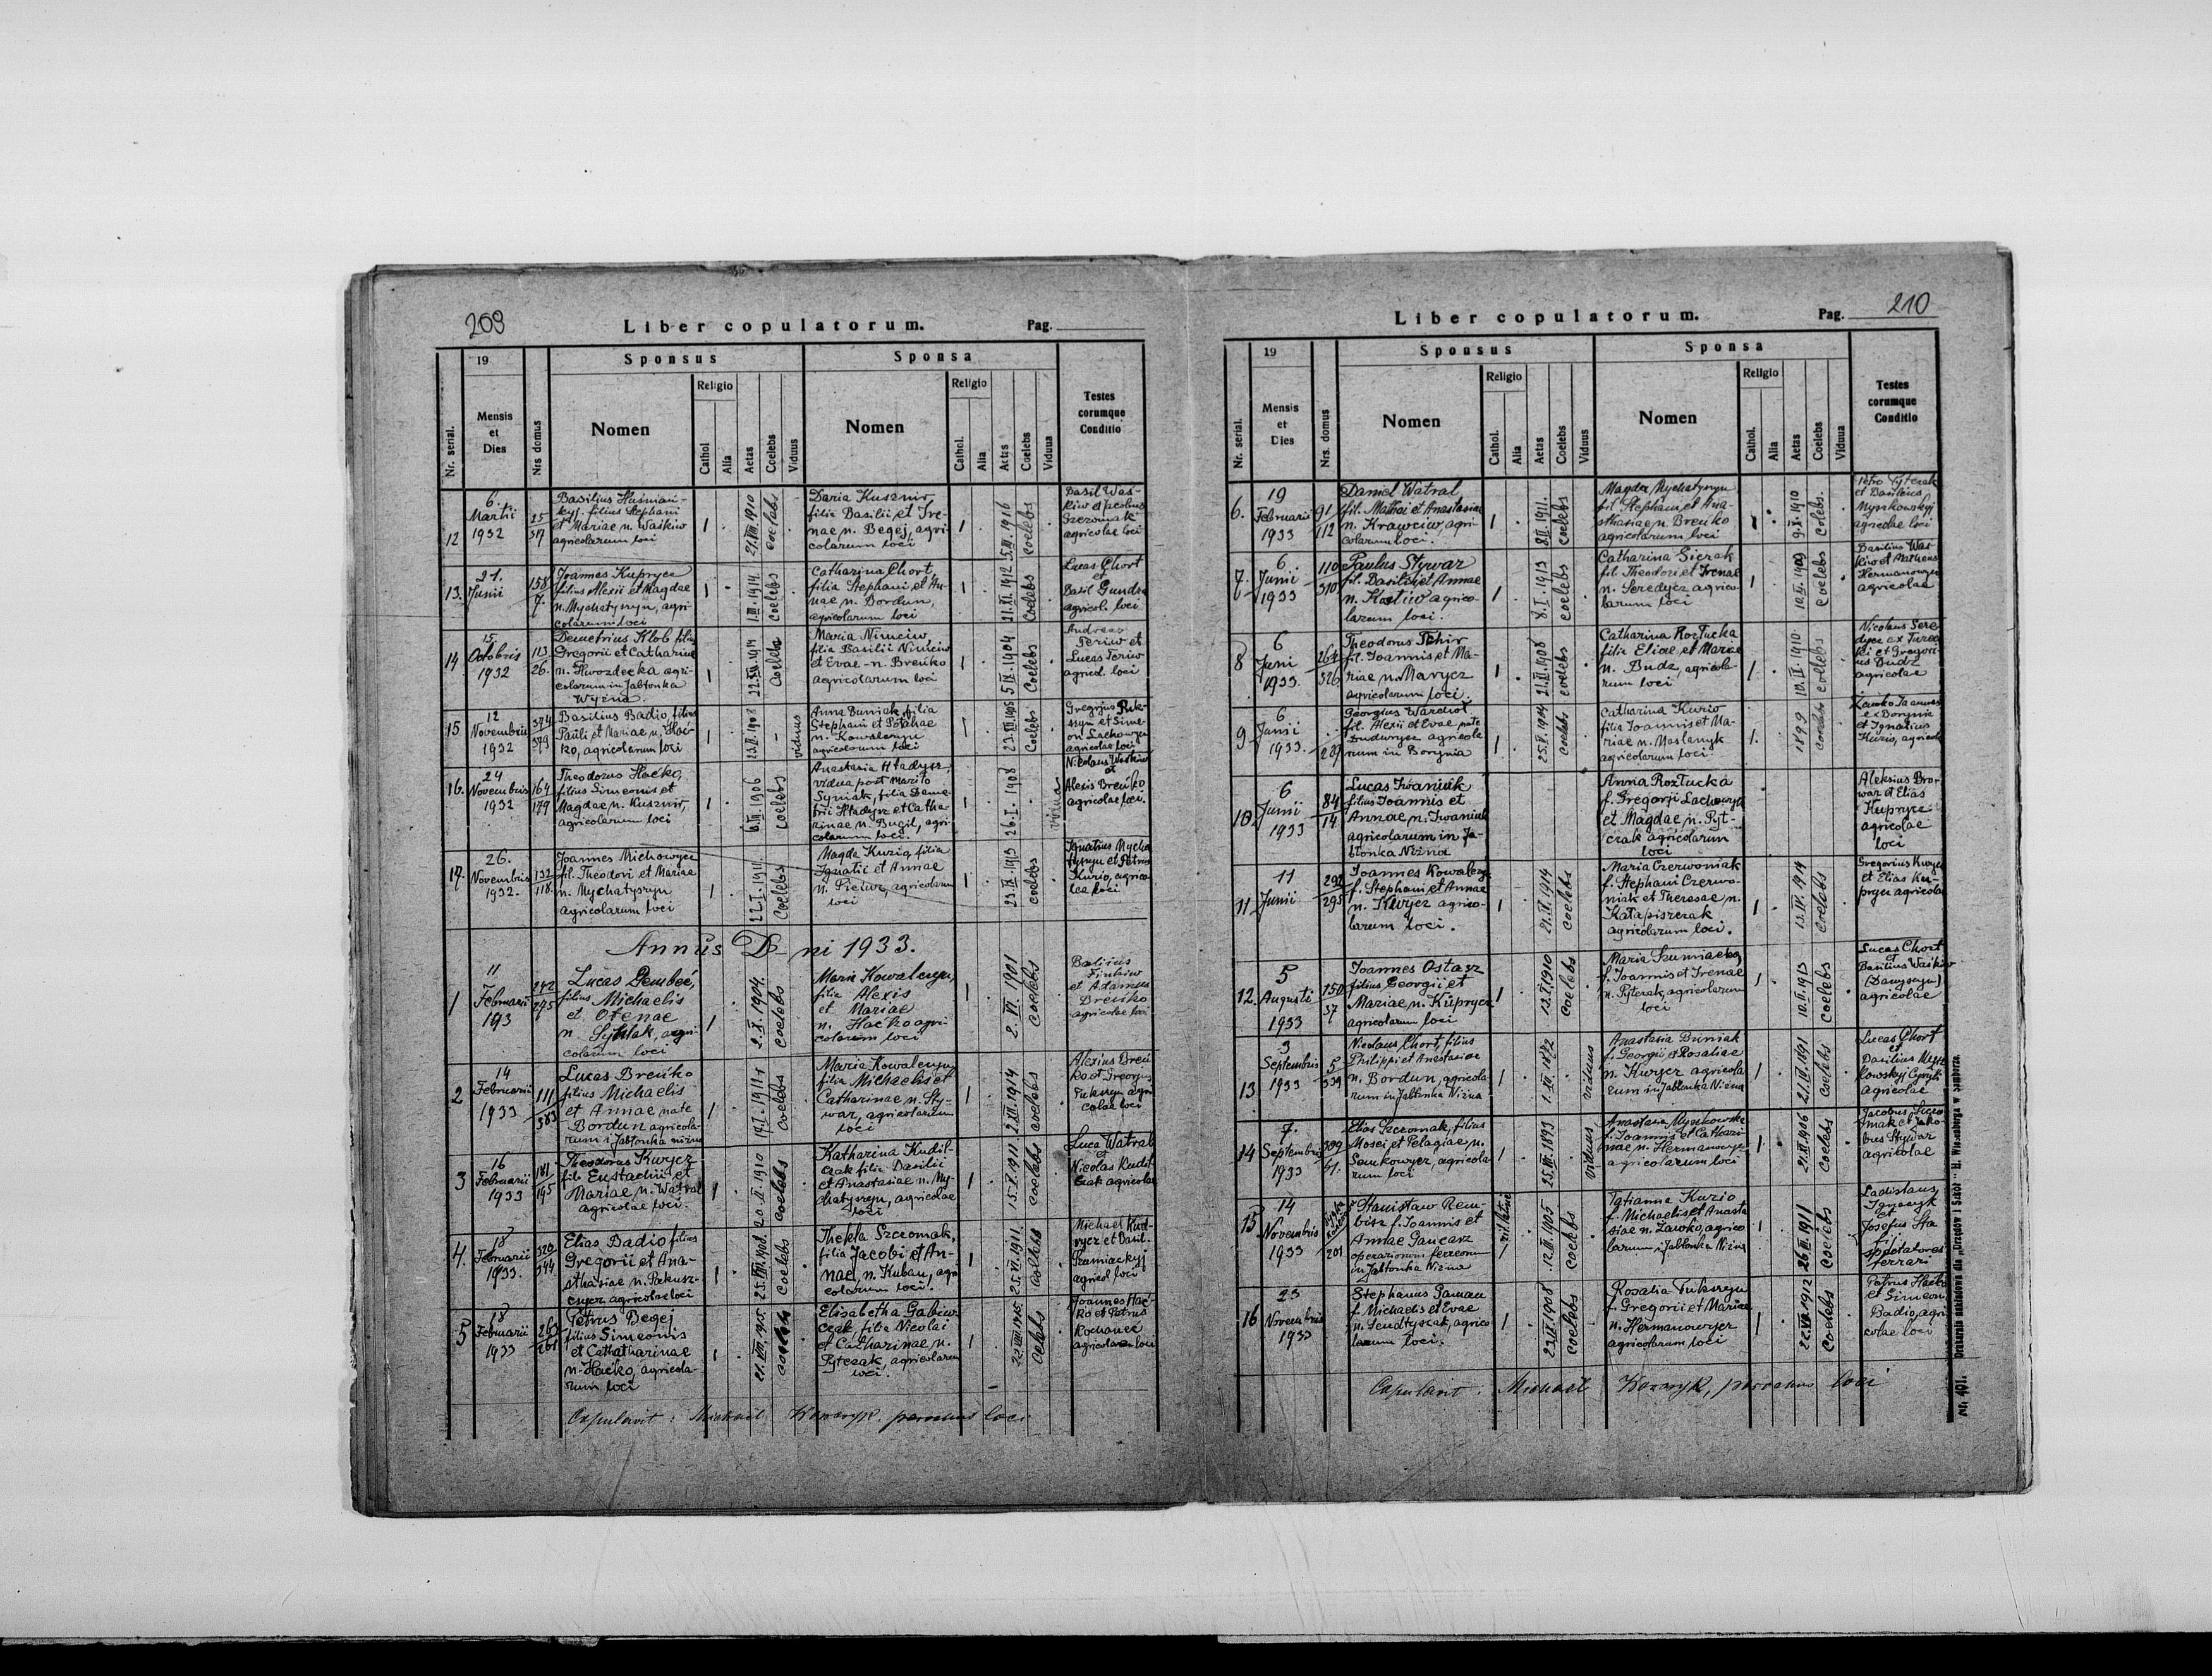 209
Liber copulatorum.
Pag.
Nr. serial.
19
Mensis
et
Dies
Nrs domus
Sponsus
Nomen
Religio
Cathol
Alia
Aetas
Coelebs
Viduus
Sponsa
Nomen
Religio
Cathol.
Alia
Aetas
Coelebs
Vidua
Testes
eorumque
Conditio
12
6.
Martii
1932
25
317
Basilius
filius Stephani
et Mariae n. Waśkiw
agricolarum loci
21.VIII.1910
coelebs
Daria Kusznir,
filia Basilii, et Ire-
nae n. Begej, agri-
colarum loci
1916
coelebs
Basil Waś-
kiw et Jacobus
Szczomiak
agricolae loci
13.
21.
Junii
158
7.
Joannes Kupryez
filius Alexii et Magdae
n. Mychatysyn, agri-
colarum loci
1.III.1914.
Coelebs
Catharina Chort,
filia Stephani et An-
nae n. Bordun,
agricolarum loci
21.XI.1912
Coelebs
Lucas Chort
et
Basil Gundza
agricol. loci
14
15.
Octobris
1932
113
26.
Demetrius Klob filius
Gregorii et Catharinae
n. Hwozdecka agri-
colarum in Jabłonka
Wyżna.
Coelebs
Maria Nimciw,
filia Basilii Nimciw
et Evae n. Breńko
agricolarum loci
5 IV.1904
Coelebs
Andreas
Feriw et
Lucas Feriw
agricol. loci
15
12
Novembris
1932
374
379
Basilius Badio, filius
Pauli et Mariae n. Hać-
ko, agricolarum loci
23.II.1908
-
viduus
Anna Buniak, filia
Stephani et
n. Kowalczyn
agricolarum loci
23.III.1905
Coelebs
Gregorius Tuk-
szyn et Sime-
on Lachowyn
agricolae loci
16.
24
Novembris
1932
164
179
Theodorus Haćko,
filius Simeonis et
Magdae n. Kusznir,
agricolarum loci
1906
coelebs
Anastasia Hładysz,
vidua post Marito
Syniak, filia Deme-
trii Hładysz et Catha-
rinae n. Bugil, agri-
colarum loci.
26.I.1908
vidua
Nicolaus Waśkiw
et
Alexis Breńko
agricolae loci.
17.
26.
Novembris
1932.
132
118.
Joannes Michowycz
fil. Theodori et Mariae
n. Mychatysyn
agricolarum loci
22.I.1911
Coelebs
Magda Kurio, filia
Ignatii et Annae
agricolarum
loci
1913
coelebs
Ignatius Mycha-
tysyn et Petrus
Kurio, agrico-
lae loci
Annus D-ni 1933.
1
11
Februarii
193
242
275
Lucas
filius Michaelis
et
n. agri-
colarum loci
2.X.1904.
coelebs
Maria Kowalczyn,
filia Alexis
et Mariae
n. Haćko agri-
colarum loci
2.VI.1901
Coelebs
et Adamus
Breńko
agricolae loci
2
14
Februarii
1933
111
383
Lucas Breńko
filius Michaelis
et Annae nate
Bordun agricola-
rum i Jabłonka niżna
1911
Coelebs
Maria Kowalczyn,
filia Michaelis et
Catharinae n. Sty-
war, agricolarum
loci
2.XII.1914
coelebs
Alexius Breń
ko et Gregorius
Tukszyn agri
colae loci
3
16
Februarii
1933
181
195
Theodorus Kurycz
fili Eustachii et
Mariae n. Watral
agricolae loci.
20.II.1910
coelebs
Katharina Kudil-
czak filia Basilii
et Anastasiae n. My-
chatysyn, agricolae
loci
15.V.1911.
coelebs
Luca Watral
et
Nicolas Kudil
czak agricolae
4.
18
Februarii
1933.
320
344
Elias Badio filius
Gregorii et Ana-
sthasiae n.
agricolae loci
25.VII.1908.
Coelebs
Thekla Szczomak,
filia Jacobi et An-
nae, n. Kuban, agri
colarum loci.
25.VI.1911.
Coelebs
Michael
et Basil.
Szumiackyj
agricol loci
5
18
Februarii
1933
263
261
Petrus Begej
filius Simeonis
et Cathatharinae
n. Haćko, agricola-
rum loci
21.VII.1905.
coelebs
Elisabetha
czak filia Nicolai
et Catharinae n.
Pytczak, agricolarum
loci.
22.VIII.1915.
Coelebs
Joannes Hać-
ko et Petrus
Romanec
agricolarum loci
Copulavit: Michael Kozoryk. parochus loci
Liber copulatorum.
Pag. 210
Nr. serial.
19
Mensis
et
Dies
Nrs. domus
Sponsus
Nomen
Religio
Cathol.
Alia
Aetas
Coelebs
Viduus
Sponsa
Nomen
Religio
Cathol.
Alia
Aetas
Coelebs
Vidua
Testes
eorumque
Conditio
6.
19
Februarii
1933
91
112
Daniel Watral
fil. Mathei et Anastasiae
n. Krawciw, agri-
colarum loci.
8.II.1911.
coelebs
Magda Mychatysyn
fil Stephani et Ana-
sthasiae n. Breńko
agricolarum loci
9.X.1910
Coelebs.
Petro Pytczak
et Basilius
Myszkowskyj
agricolae loci
7.
6
Junii
1933
110
310
Paulus Stywar
fil. Basilii et Annae
n. Kotiw agrico-
larum loci.
8.I.1913
coelebs
Catharina Siczak
fil. Theodori et Irenae
n. Seredycz agrico-
larum loci
10.II.1909
Coelebs
Basilius Waś-
kiw et
Hermanowycz
agricolae
8
6
Juni
1933.
264
326
Theodorus Tchir
fil. Joannis et Ma-
riae n. Mavycz
agricolarum loci.
21.II.1908
coelebs
Catharina Rozłucka
filia Eliae et Mariae
n. Budz, agricola-
rum loci
10.II.1910.
coelebs
Nicolaus Sere
dycz ex Turec
ki et Gregori-
us Budz
agricolae
9
6
Junii
1933.
289
Georgius Warchoł
fil. Alexii et Evae nate
Dudurycz agricola
rum in Borynia
25.V.1904
coelebs
Catharina Kurio
filia Joannis et Ma-
riae n. Maslanyk
agricolarum loci.
1899
coelebs
Joannes
ex Borynia
et Ignatius
Kurio, agricola
10.
6
Junii
1933
84
14
Lucas Iwaniuk
filius Joannis et
Annae n. Iwaniuk
agricolarum in Ja-
błonka Niżna
Anna Rozłucka
f. Gregorji Lachowycz
et Magdae n. Pyt-
czak agricolarum
loci
Aleksius Bro-
war et Elias
Kupryez
agricolae
loci
11
11
Junii
292
295
Joannes Kowalczyn
f. Stephani et Annae
n. Kurycz agrico-
larum loci.
21.IX.1914
coelebs
Maria Czerwoniak
f. Stephani Czerwo-
niak et Theresae n.
Katapiszczak
agricolarum loci.
13.IV.1914
Coelebs
Gregorius Kurycz
et Elias Ku-
pryez agricolae
12.
5
Augusti
1933
150
37
Joannes Ostasz
filius Georgii et
Mariae n. Kupryez
agricolarum loci
13.X.1910
Coelebs
Maria Szumiacka,
f. Joannis et Irenae
n. Pytczak, agricolarum
loci
10.II.1913
Coelebs
Lucas Chort
et
Basilius Waśkiw
(Danysyn)
agricolae
13
3
Septembris
1933
5
339
Nicolaus Chort, filius
Philippi et Anastasiae
n. Bordun, agricola
rum in Jabłonka Niżna
1.XII.1882
viduus
Anastasia Buniak
f. Georgii et Rosaliae
n. Kurycz agricola
rum in Jabłonka Niżna
2.II.1891
Coelebs
Lucas Chort
et
Basilius Mysz
kowskyj
agricolae
14
7.
Septembris
1933
309
61.
Elias Szczomak, filius
Mosei et Pelagiae n.
Senkowycz, agricola-
rum loci
25.III.1893
viduus
Anastasia Myszkowska
f. Joannis et Cathari-
nae n. Hermanowycz
agricolarum loci
21.II.1906
Coelebs
Jacobus Szczo
mak et Jako-
bus Stywar
agricolae
15
14
Novembris
1933
201
Stanisław Rem-
bisz f. Joannis et
Annae Gancarz
operarionum ferreorum
in Jabłonka Niżna
rit. latini
12.III.1905
coelebs
Tatianna Kurio
f. Michaelis et Anasta
siae n. Zawko, agrico
larum i Jabłonka Niżna
26.III.1911
Coelebs
Ladislaus
Ignaszyk
et
Josefus Sta
fij
spectatores
ferrari
16
23
Novembris
1933
Stephanus Gaman
f. Michaelis et Evae
n. Sendtyszak, agrico-
larum loci.
23.IV.1908
coelebs
Rosalia Tukszyn
f. Gregorii et Mariae
n. Hermanowycz
agricolarum loci
22.VII.1912
Coelebs
Petrus Haćko
et Simeon
Badio, agri
colae loci
Copulavit: Michael Kozoryk, parochus loci
Nr. 401. Drukarnia nakładowa dla „Urzędów i Szkół" H. Wiesenberga w Samborze.